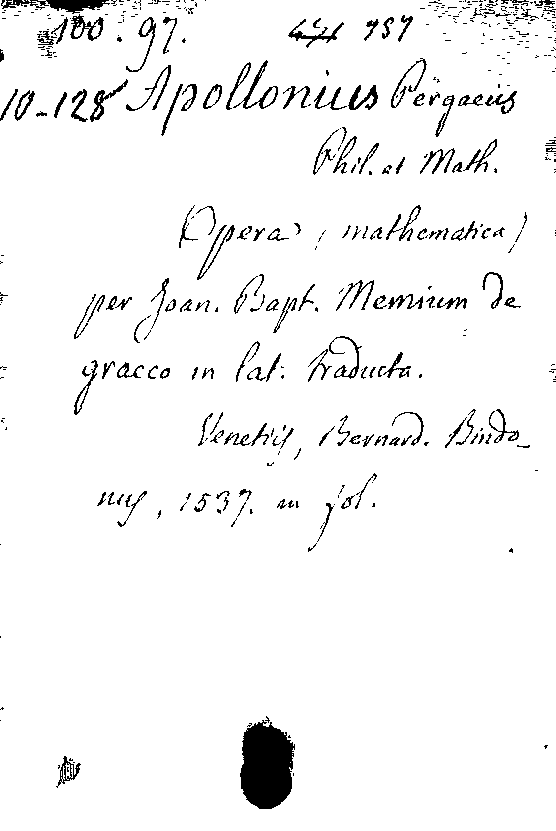 100.97. 757
10-128 Apollonius Pergaeus
Phil. et Math.
Opera (mathematica)
per Joan. Bapt. Memium de
graeco in lat. traducta.
Venetiis, Bernard. Bindo-
nus, 1537. in fol.